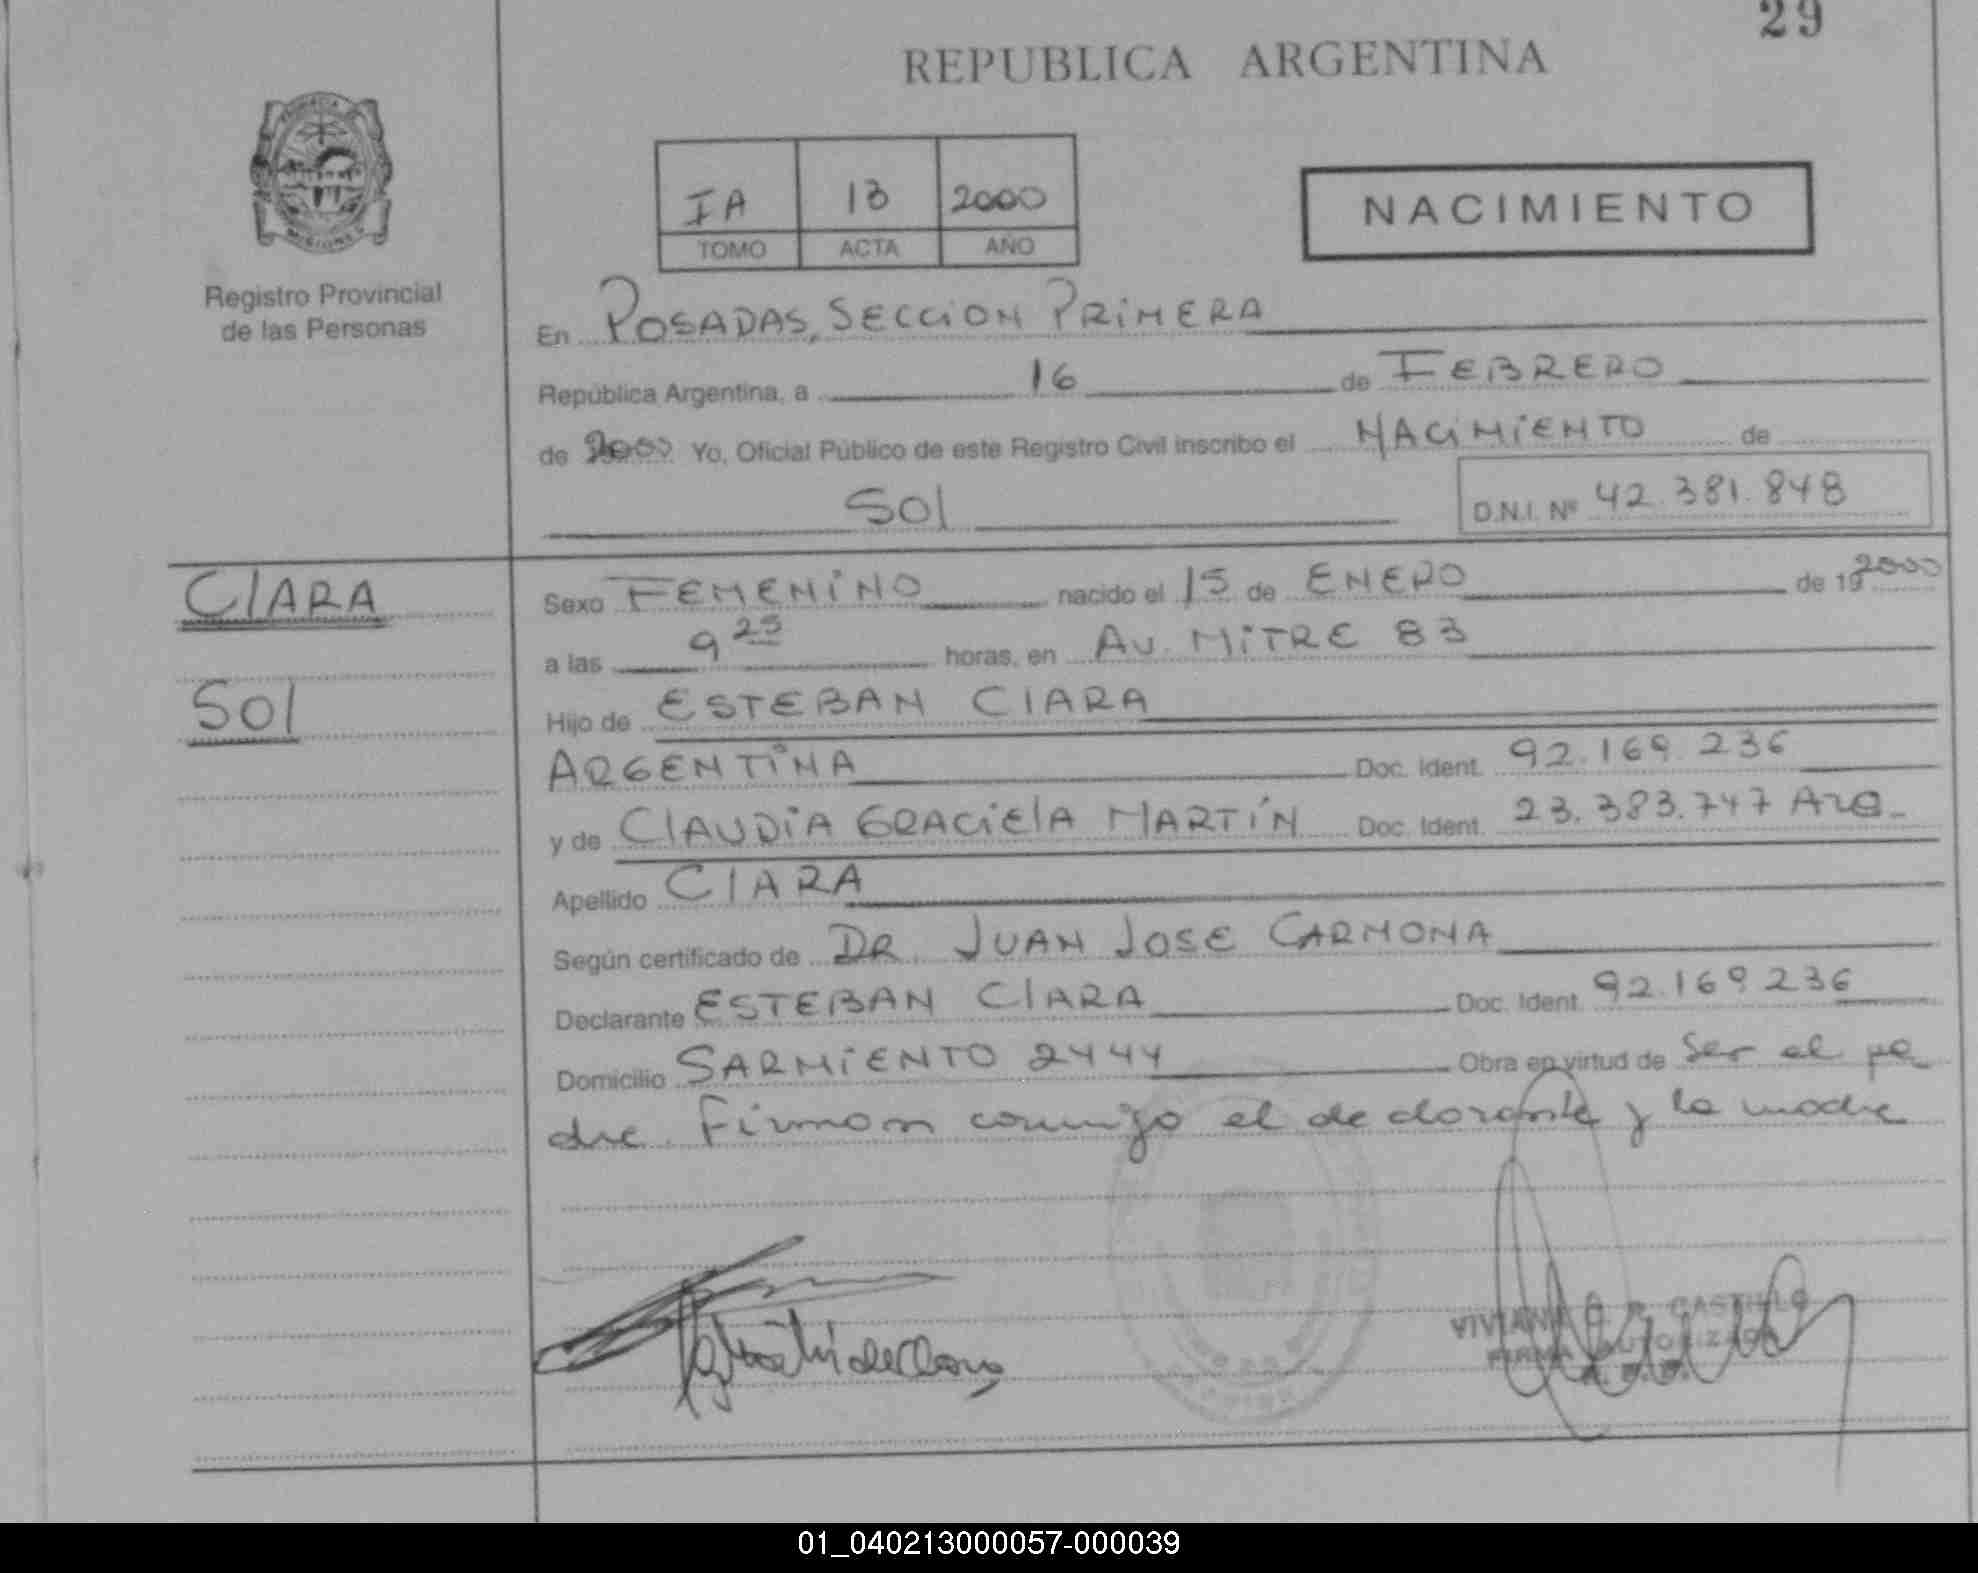 29
REPUBLICA ARGENTINA
IA 13 2000
TOMO ACTA AÑO
NACIMIENTO
MISIONES
Registro Provincial
de las Personas
En POSADAS, SECCION PRIMERA
República Argentina, a 16 de FEBRERO
de 2000 Yo, Oficial Público de este Registro Civil inscribo el NACIMIENTO de
SOl
D.N.I. Nº 42.381.848
ClARA
SOl
Sexo FEMENINO nacido el 15 de ENERO de 19 2000
a las 9 25 horas, en AV. MITRE 83
Hijo de ESTEBAN ClARA
ARGENTINA Doc. Ident. 92.169.236
y de ClAUDIA GRACIElA MARTÍN Doc. Ident. 23.383.747 ARG-
Apellido ClARA
Según certificado de DR JUAN JOSE CARMONA
Declarante ESTEBAN ClARA Doc. Ident. 92.169 236
Domicilio SARMIENTO 2444 Obra en virtud de Ser el pa
dre. Firman conmigo el declarante y la madre
VIVIANA CASTILLO
FIRMA AUTORIZADA
01_040213000057-000039